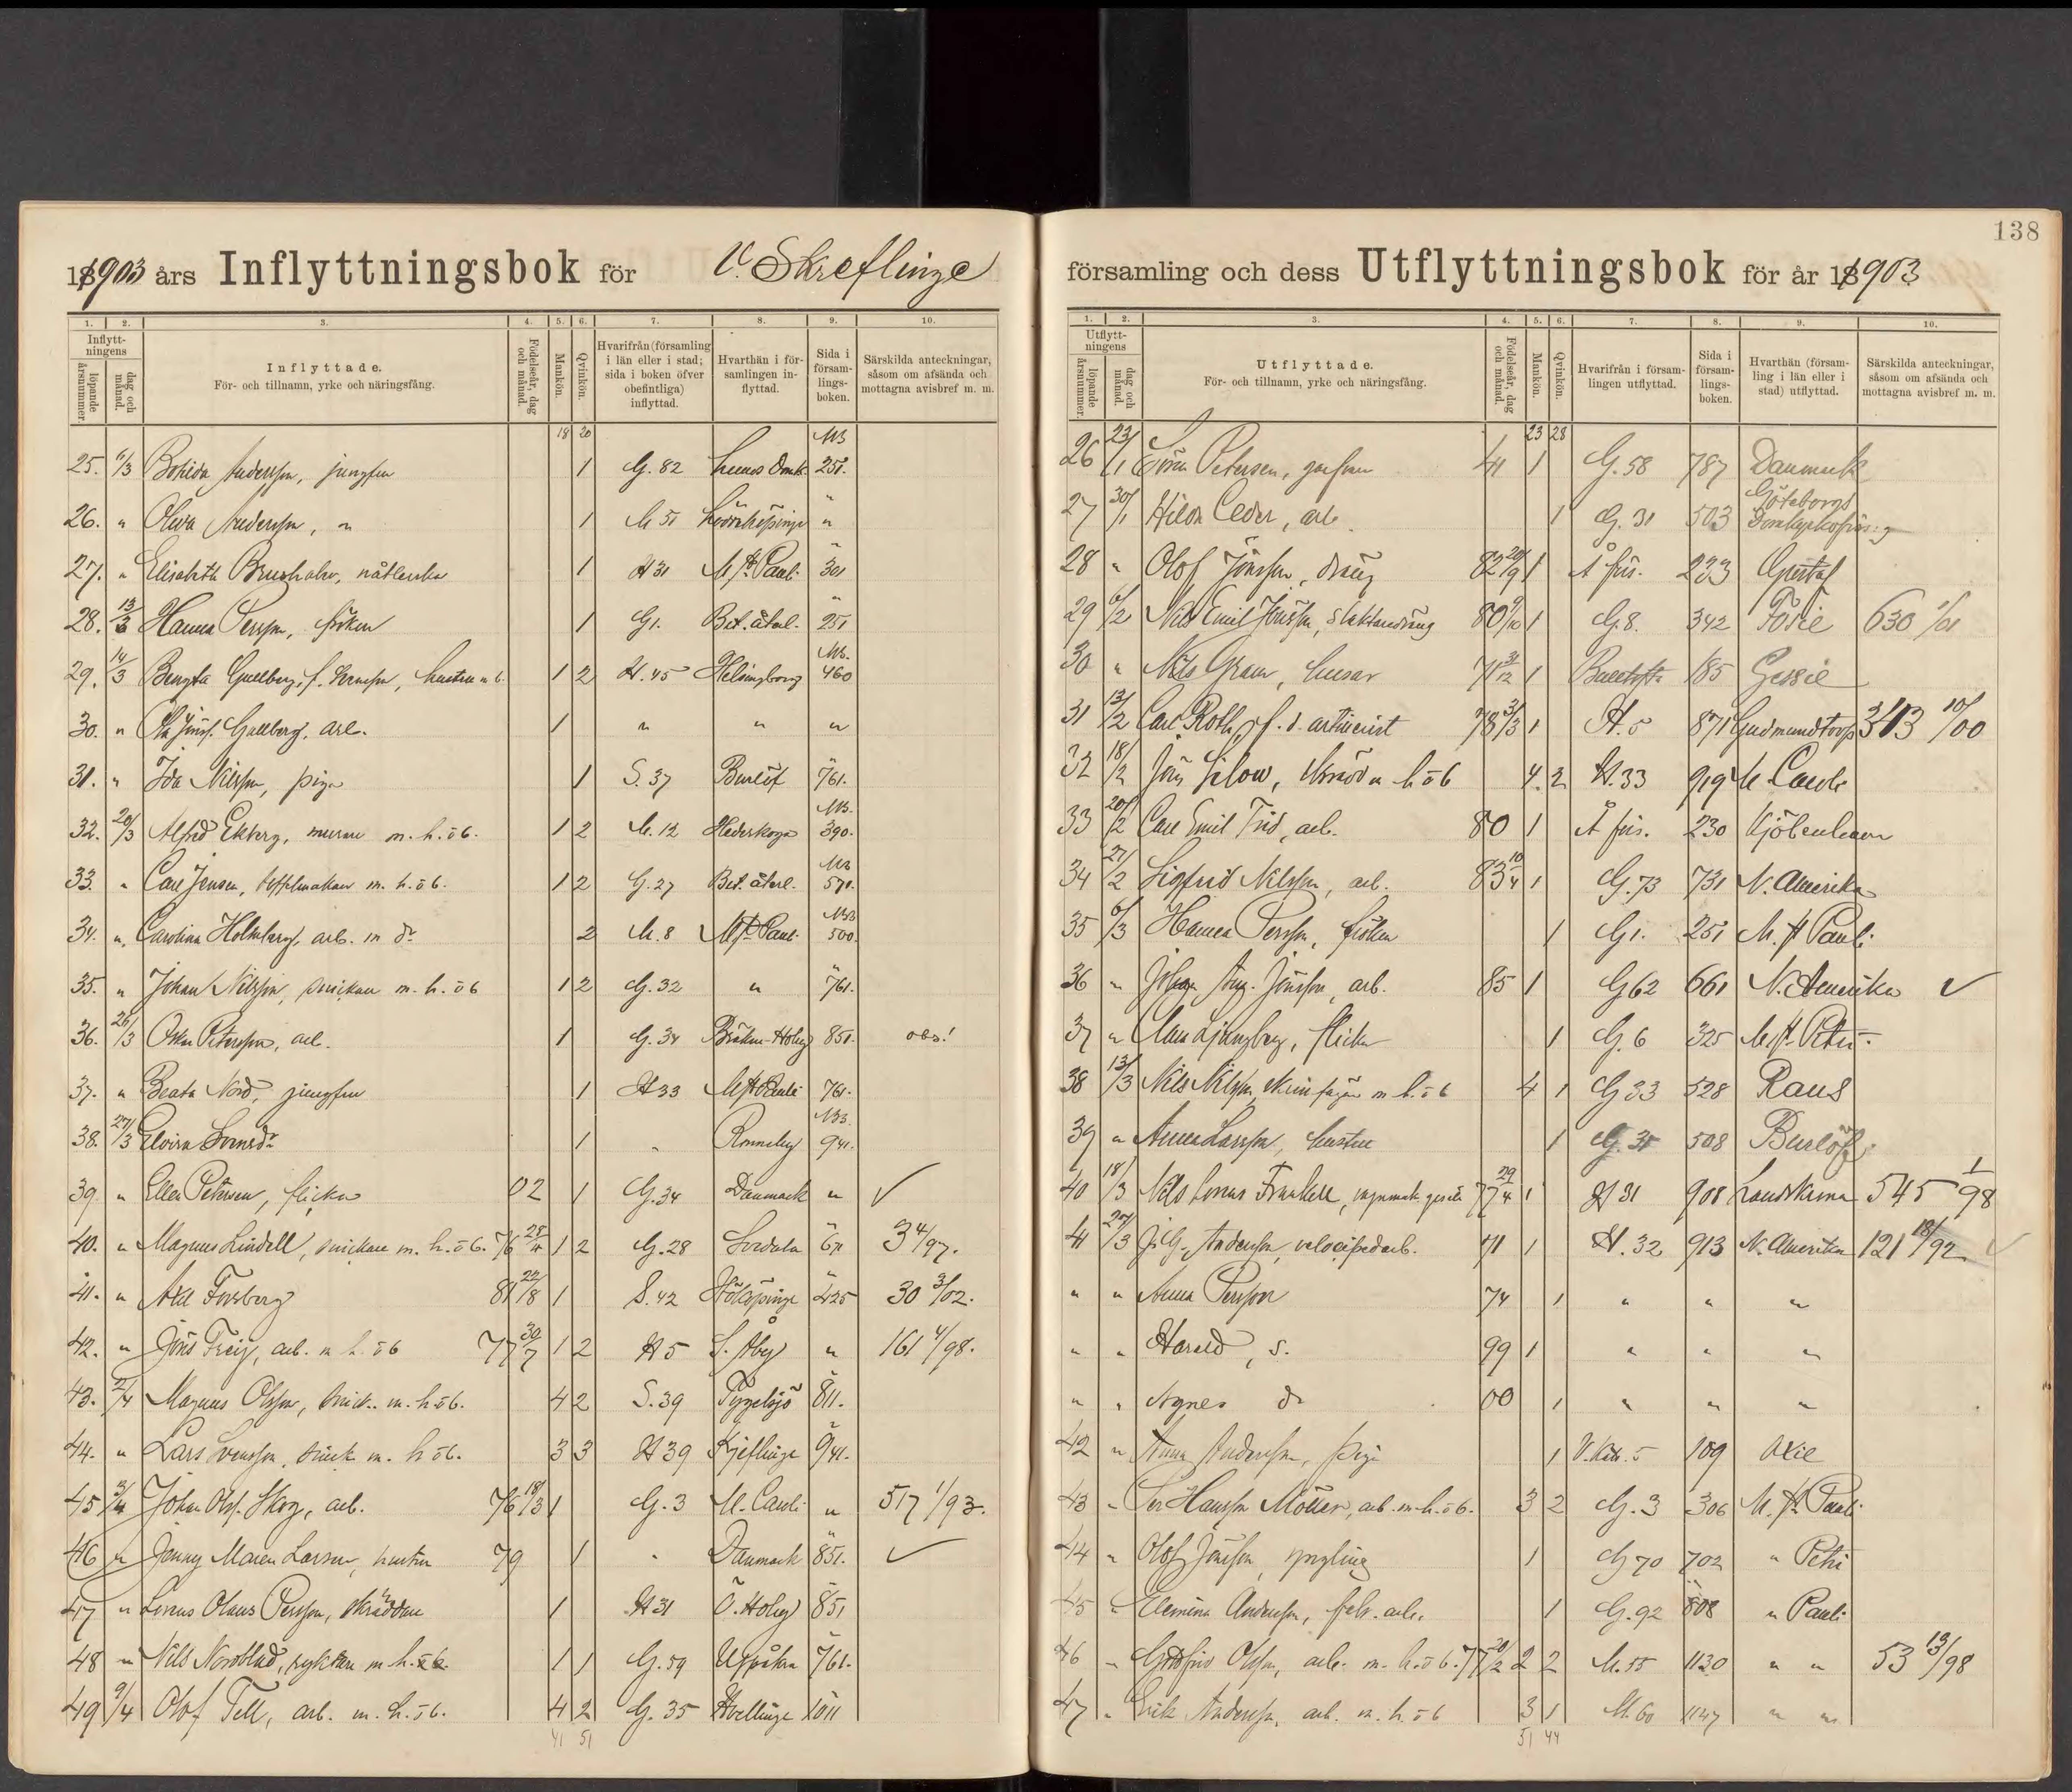 138
1903 års Inflyttningsbok för V. Skreflinge
1. 2. 3. 4. 5. 6. 7. 8. 9. 10.
Inflyttningens
löpande årsnummer.
dag och månad.
Inflyttade.
För- och tillnamn, yrke och näringsfång.
Födelseår, dag och månad.
Mankön.
Qvinkön.
Hvarifrån (församling i län eller i stad; sida i boken öfver obefintliga) inflyttad.
Hvarthän i församlingen inflyttad.
Sida i församlingsboken.
Särskilda anteckningar, såsom om afsända och mottagna avisbref m. m.
18 20
25. 6/3 Andersson, jungfru 1 G. 82 251.
26. " Oliva Andersson, " 1 M 51 Löderköpinge "
27. " Elisabeth nåtlerska 1 H 31 M. St. Pauli 301
28. 13/3 Hanna Persson, fröken 1 G 1. Bet. åter. 251
29. 14/3 Bengta Gullberg, f. hustru 1 2 H. 45 Helsingborg 460
30. " Ola Gullberg, arb. 1 " " "
31. " Ida Nilsson, piga 1 S. 37 Burlöf 761.
32. 20/3 Alfred Ekberg, murare m. h. o b. 1 2 M. 12 Hedeskoga 390.
33. " Carl Jensen, toffelmakare m. h. o b. 1 2 G. 27 Bet. åter. 571.
34. " Carolina Holmberg, arb. m dr 2 M. 8 M St. Pauli 500.
35. " Johan Nilsson, snickare m. h. o b 1 2 G. 32 " 761.
36. 26/3 Oskar Petersson, arb. 1 G. 34 Bräkne-Hoby 851. obs!
37. " Beata Nord, jungfru 1 H 33 M St Pauli 761.
38. 27/3 Elvira 1 " Ronneby 941.
39 " Ellen Petersen, flicka 02 1 G. 34 Danmark "
40. " Magnus Lindell, snickare m. h. o b. 76 28/11 1 2 G. 28 Svedala 671 3 4/97.
41. " Axel Forsberg 81 22/8 1 S. 42 Hököpinge 425 30 3/02.
42. " Jöns Freij, arb. m h. o b 77 30/7 1 2 H 5 S. Åby " 161 4/98.
43. 2/4 Magnus Olsson, snick. m. h o b. 4 2 S. 39 Tygelsjö 811.
44. " Lars Svensson, snick m. h o b. 3 3 H 39 Kjeflinge 941.
45 3/4 Johan Olss. Skog, arb. 76 18/3 1 G. 3 M. Caroli " 517 1/93.
46 " Jenny Maren Larsen, hustru 79 1 " Danmark 851.
47 " Linus Olaus Persson, skräddare 1 H 31 Ö. Hoby 851
48 " Nils Nordblad, ryktare m h. 1 1 G. 59 Uppåkra 761.
49 9/4 Olof Tell, arb. m. h. o b. 4 2 G. 35 Hvellinge 1011
41 51
församling och dess Utflyttningsbok för år 1903
1. 2. 3. 4. 5. 6. 7. 8. 9. 10.
Utflyttningens
löpande årsnummer.
dag och månad.
Utflyttade.
För- och tillnamn, yrke och näringsfång.
Födelseår, dag och månad.
Mankön.
Qvinkön.
Hvarifrån i församlingen utflyttad.
Sida i församlingsboken.
Hvarthän (församling i län eller i stad) utflyttad.
Särskilda anteckningar, såsom om afsända och mottagna avisbref m. m.
23 28
26 23/1 Sören Petersen, 41 1 G. 58 787 Danmark
27 30/1 Hilda Ceder, arb. 1 G. 31 503 Göteborgs Domkyrkoförs:g
28 " Olof Jönsson, dräng 82 20/9 1 Å fus. 233 Gustaf
29 6/2 Nils Emil Jönsson, slaktaredräng 80 9/10 1 G. 8. 342 Fosie 630 1/01
30 " Nils Gram, husar 71 31/12 1 185 Gessie
31 13/2 Carl Roth, f. d. artillerist 78 31/3 1 H. 5 871 Gudmundtorp 313 10/00
32 18/2 Jöns m h o b 4. 2 H. 33 919 M. Caroli
33 20/2 Carl Emil Frid, arb. 80 1 Å fus. 230 Kjöbenhavn
34 27/2 Sigfrid Nilsson, arb. 83 10/4 1 G. 73 731 N. Amerika
35 6/3 Hanna Persson, fröken 1 G 1. 251 M. St Pauli
36 " Johan Aug. Jönsson, arb. 85 1 G 62 661 N. Amerika
37 " Ljungberg, flicka 1 G. 6 325 M. St. Petri
38 13/3 Nils Nilsson, m h. o b 4 1 G 33 528 Raus
39 " Anna Larsson, hustru 1 G. 31 508 Burlöf.
40 18/3 Nils Linus vagnmak. gesäll 77 29/4 1 H 31 908 Landskrona 545 1/98
41 27/3 Andersson, velocipedarb. 71 1 H. 32 913 N. Amerika 121 18/92
" " Anna Persson 74 1 " " "
" " Harald, s. 99 1 " " "
" " Agnes dr 00 1 " " "
42 " Anna Andersson, piga 1 V. Katr. 5 109 Oxie
43 " Per Hansson Möller, arb. m. h. o b. 3 2 G. 3 306 M. St. Pauli
44 " Olof Jönsson, yngling 1 G 70 702 " Petri
45 " Elemina Andersson, fabr. arb. 1 G. 92 808 " Pauli
46 " Gottfrid Olsson, arb. m. h. o b. 77 20/2 2 2 M. 55 1130 " " 53 13/98
47 " Erik Andersson, arb. m. h. o b 3 1 M. 60 1147 " "
51 44